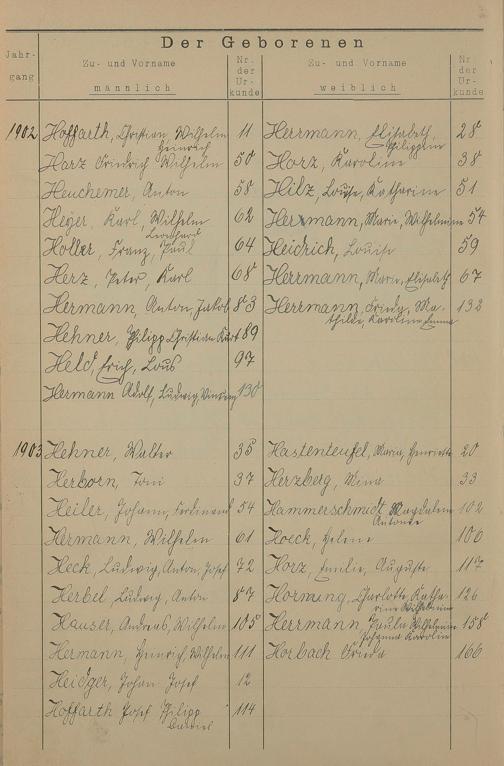 Der Geborenen
Jahr-
gang
Zu- und Vorname
männlich
Nr.
der
Ur-
kunde
Zu- und Vorname
weiblich
Nr.
der
Ur-
kunde
1902 Hoffarth, Christian, Wilhelm 11 Herrmann, Elisabeth, 28
Heinrich Philippine
Harz Friedrich Wilhelm 50 Horz, Karoline 38
Heuchemer, Anton 58 Hilz, Louise, Katharine 51
Heyer, Karl, Wilhelm 62 Herrmann, Marie, Wilhelmine 54
Leonhard
Holler, Franz, Paul 64 Heidrich, Louise 59
Herz, Peter, Karl 68 Herrmann, Marie, Elisabeth 67
Hermann, Anton, Jakob 83 Herrmann, Frieda, Ma- 132
thilde, Karoline, Emma
Hehner, Philipp Christian Kurt 89
Held, Erich, Lous 97
Hermann Adolf, Ludwig, Vinzenz 130
1903 Hehner, Walter 35 Hastenteufel, Maria, Henriette 20
Herborn, Toni 37 Herzberg, Mina 33
Heiler, Johann, Ferdinand 54 Hammerschmidt Magdalena 102
Antonie
Hermann, Wilhelm 61 Hoeck, Helene 106
Heck, Ludwig, Anton, Josef 72 Horz, Emilie, Auguste 117
Herbel, Ludwig, Anton 87 Horning, Charlotte, Katha- 126
rine Wilhelmine
Hauser, Andreas, Wilhelm 105 Herrmann, Paula Wilhelmine 158
Johanna Karoline
Hermann, Heinrich, Wilhelm 111 Horbach Frieda 166
Heidger, Johann Josef 12
Hoffarth Josef Philipp 114